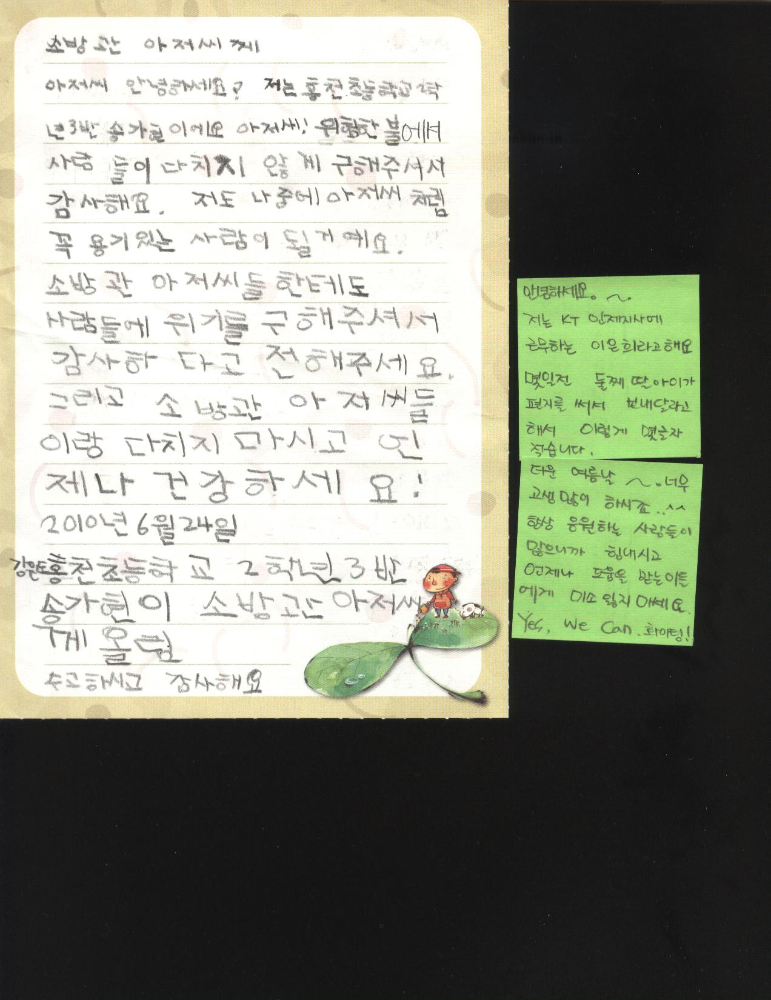 소방관 아저씨께
아저씨 안녕하세요? 저는 홍천초등학교 2학
년 3반 송가현이에요 아저씨! 위험한 불에서
사람 들이 다치지 않게 구해주셔서
감사해요. 저도 나중에 아저씨 처럼
꼭 용기있는 사람이 될거예요.
소방관 아저씨들한테도
사람들에 위기를 구해주셔서
감사하 다고 전해주세요.
그리고 소방관 아저씨들
이랑 다치지 마시고 언
제나 건강하세요!
2010년 6월 24일
강원도 홍천초등학교 2학년 3반
송가현이 소방관 아저씨
께 올림
수고하시고 감사해요
안녕하세요. ~.
저는 KT 인제지사에
근무하는 이은희라고해요
몇일전 둘째 딸아이가
편지를 써서 보내달라고
해서 이렇게 몇글자
적습니다.
더운 여름날 ~. 너무
고생많이 하시죠..^^
항상 응원하는 사람들이
많으니까 힘내시고
언제나 도움을 받는이들
에게 미소 잃지 마세요.
Yes, We Can. 화이팅!